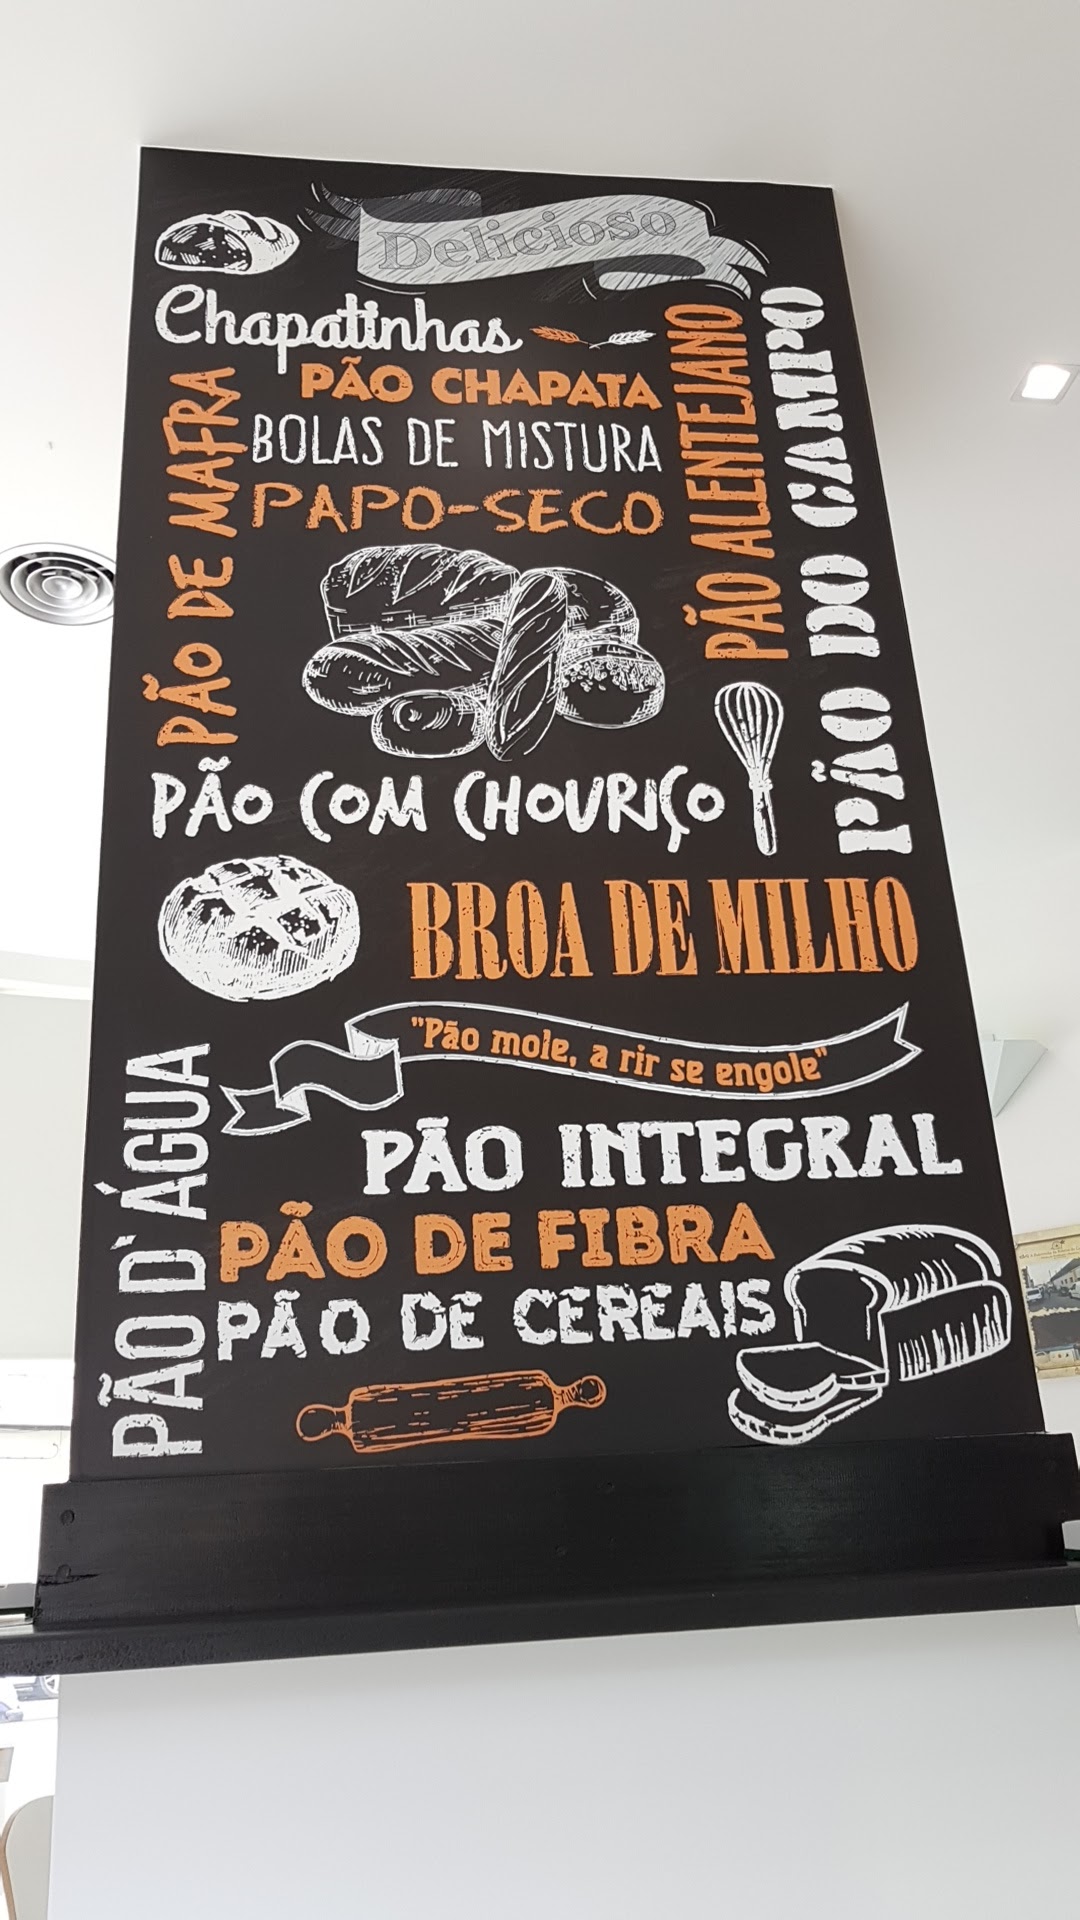 Delicioso
Chapatinhas
PÃO CHAPATA
BOLAS DE MISTURA
PAPO-SECO
PÃO DE MAFRA
PÃO ALENTEJANO
PÃO DO CAMPO
PÃO COM CHOURIÇO
BROA DE MILHO
"Pão mole, a rir se engole"
PÃO D'ÁGUA
PÃO INTEGRAL
PÃO DE FIBRA
PÃO DE CEREAIS